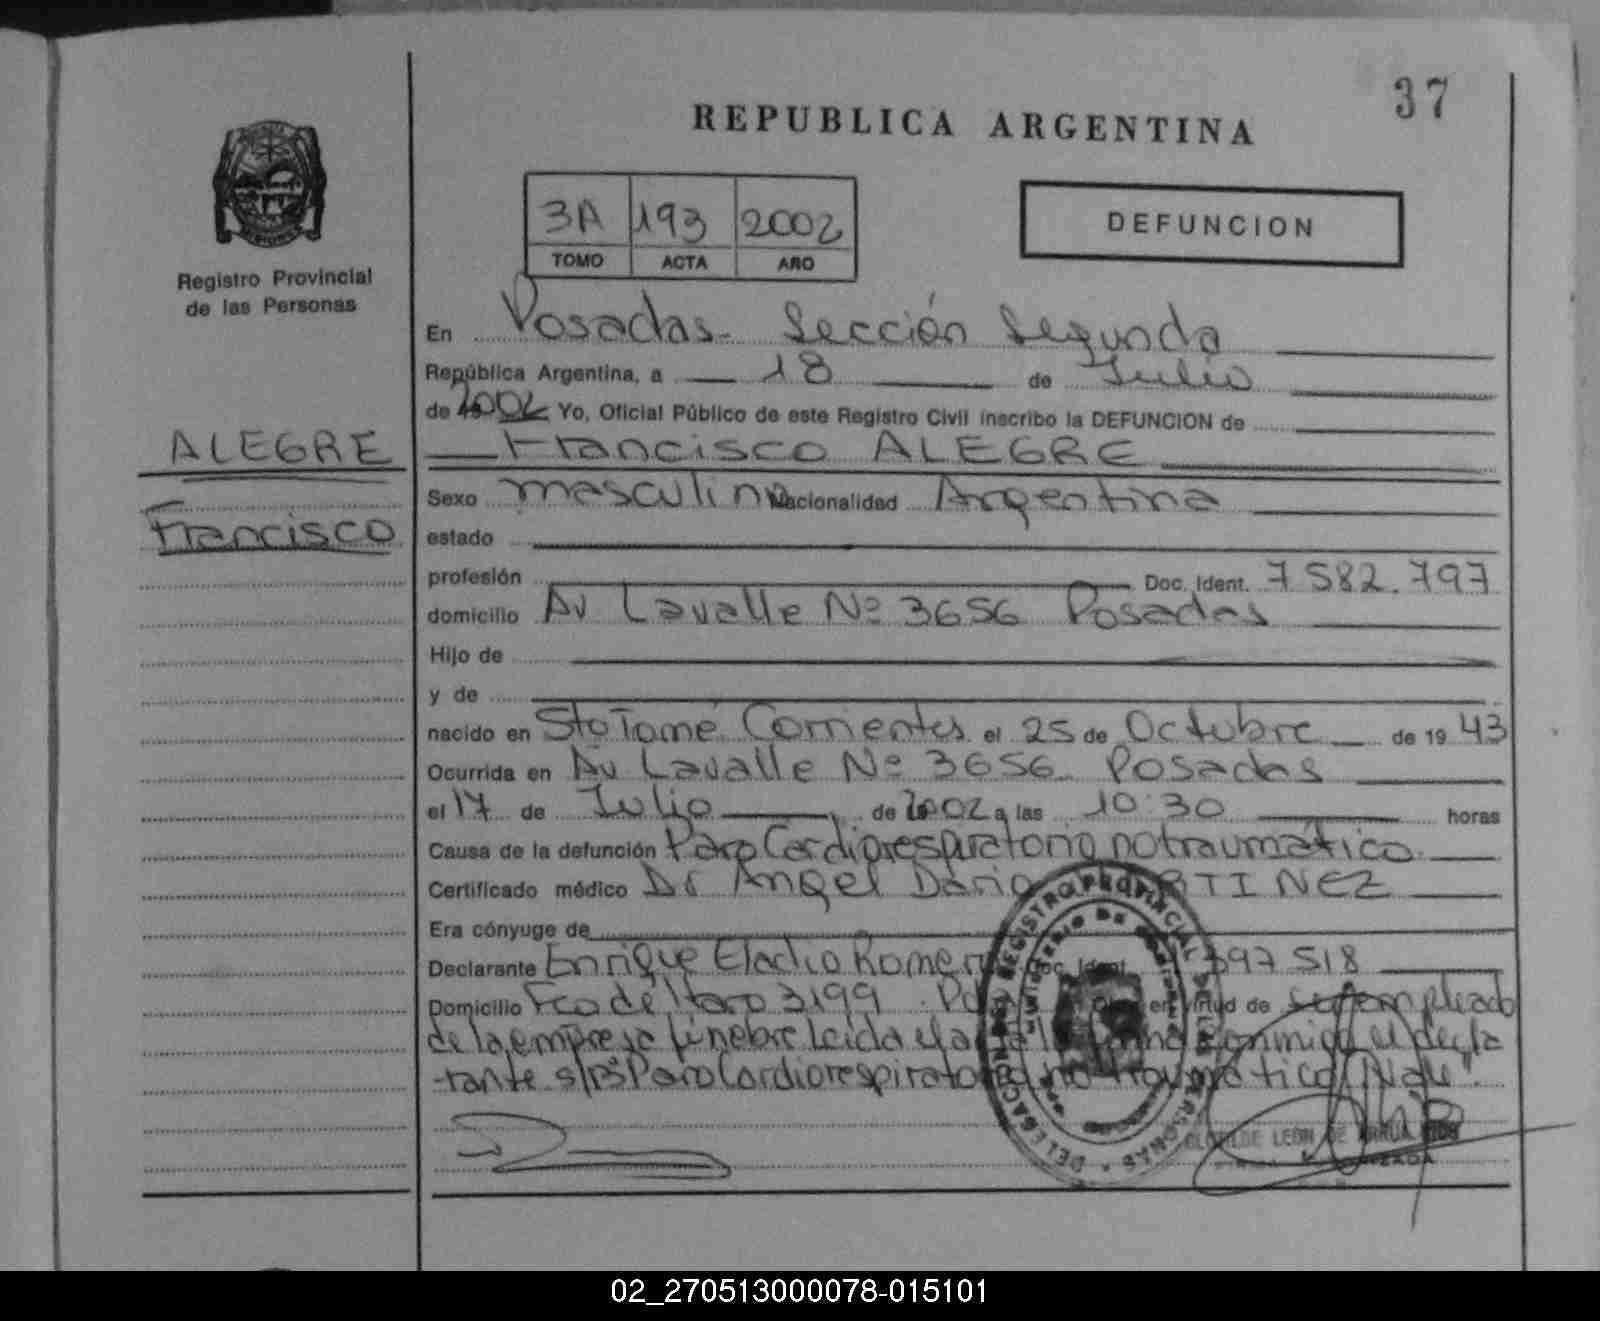 37
REPUBLICA ARGENTINA
3A 193 2002
TOMO ACTA AÑO
DEFUNCION
Registro Provincial
de las Personas
ALEGRE
Francisco
En Posadas - Sección Segunda
República Argentina, a 18 de Julio
de 2002 Yo, Oficial Público de este Registro Civil inscribo la DEFUNCION de
Francisco ALEGRE
Sexo masculino Nacionalidad Argentina
estado
profesión Doc. Ident. 7582.797
domicilio Av Lavalle Nº 3656 Posadas
Hijo de
y de
nacido en Sto Tomé Corrientes el 25 de Octubre de 1943
Ocurrida en Av Lavalle Nº 3656 Posadas
el 17 de Julio de 2002 a las 10:30 horas
Causa de la defunción Paro Cardiorespiratorio no traumático
Certificado médico Dr Angel Dario
Era cónyuge de
Declarante Enrique Eladio Romero Doc. Ident. 397518
Domicilio Fco de Haro 3199 en virtud de ser empleado
de la empresa fúnebre Leida el acta la firma conmigo el decla
rante. s/r Paro Cardiorespiratorio no traumático "Vale".
REGISTRO PROVINCIAL DE LAS PERSONAS
MINISTERIO DE
CLOTILDE LEON DE
02_270513000078-015101